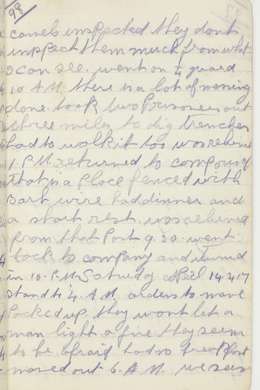 99
camels inspected they dont
inspect them much from what
I can see. went on to guard
10 A.M. there is a lot of moving
done. took two Prisoners out
three miles to dig trenches
had to walk it too was relieved
1. P.M. returned to compound
that is a Place fenced with
barb wire had dinner and
a short rest. was relieved
from that Post 9.30. went
back to company and turned
in 10. P.M. Saturday April 14.4.17
stand to 4. A.M. orders to move
Packed up, they wont let a
man light a fire they seem
to be afraid. had no breakfast
moved out 6. A.M. we